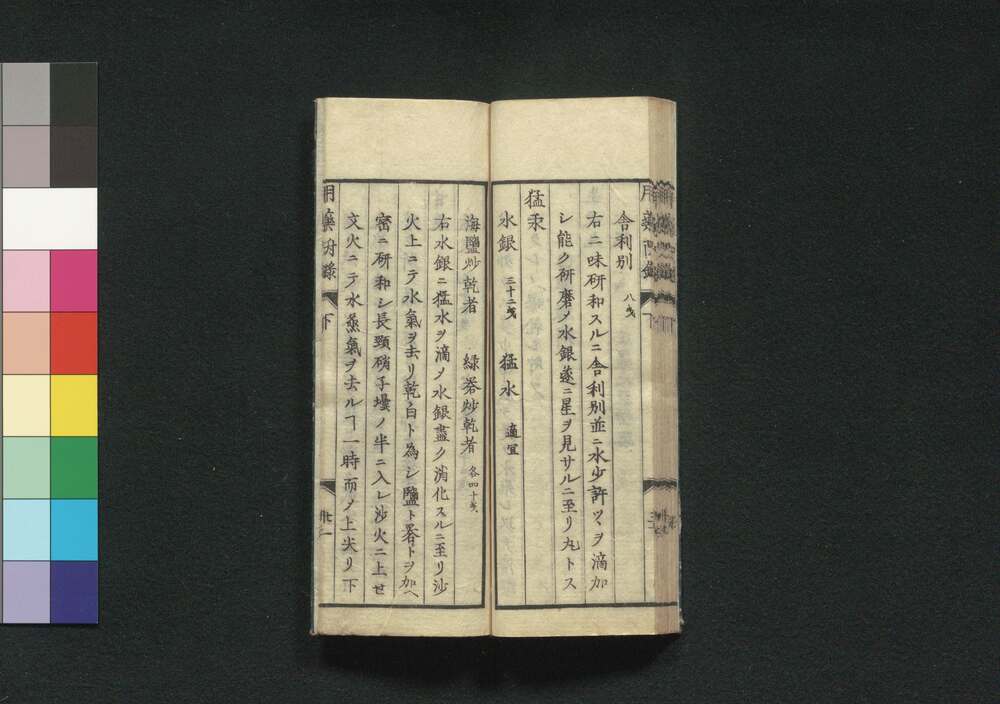 舎利別 八戔
右二味研和スルニ舎利別並ニ水少許ツヽヲ滴加
シ能ク研磨メ水銀遂ニ星ヲ見サルニ至リ丸トス
猛汞
水銀 三十二戔 猛水 適宜
海鹽炒乾者 緑礬炒乾者 各四十戔
右水銀ニ猛水ヲ滴メ水銀盡ク消化スルニ至リ沙
火上ニテ水氣ヲ去リ乾白ト為シ鹽ト礬トヲ加へ
密ニ研和シ長頸硝子壜ノ半ニ入レ沙火ニ上せ
文火ニテ水蒸氣ヲ去ルヿ一時而メ上尖リ下
下